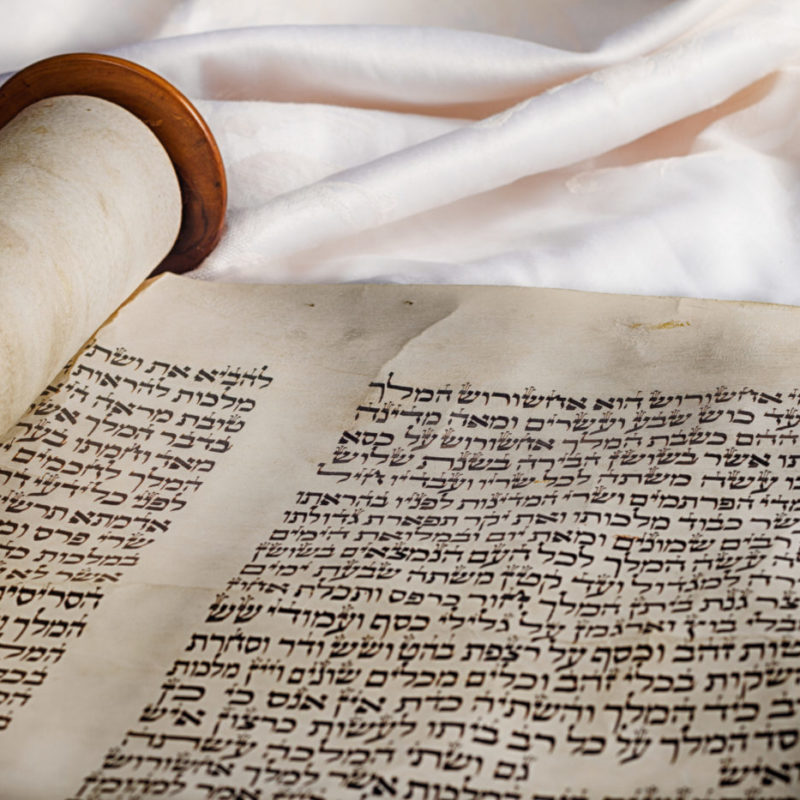 אחשורוש הוא אחשורוש המלך
עד כוש שבע ועשרים ומאה מדינה
ההם כשבת המלך אחשורוש על כסא
אשר בשושן הבירה בשנת שלוש
עשה משתה לכל שריו ועבדיו חיל
ומדי הפרתמים ושרי המדינות לפניו בהראתו
כבוד מלכותו ואת יקר תפארת גדולתו
רבים שמונים ומאת יום ובמלואת הימים
עשה המלך לכל העם הנמצאים בשושן
למגדול ועד קטן משתה שבעת ימים
גנת ביתן המלך חור כרפס ותכלת אחוז
בוץ וארגמן על גלילי כסף ועמודי שש
זהב וכסף על רצפת בהט ושש ודר וסחרת
בכלי זהב וכלים מכלים שונים ויין מלכות
כיד המלך והשתיה כדת אין אנס כי כן
המלך על כל רב ביתו לעשות כרצון איש
ואיש גם ושתי המלכה עשתה
מלכות אשר למלך אחשורוש
אמר למהומן
להביא את ושתי
מלכות להראות
טובת מראה היא
בדבר המלך אשר
מאד וחמתו
המלך לחכמים
לפני כל ידעי
אדמתא תרשיש
שרי פרס
במלכות
אשר לא
הסריסים
המלך
המלך
בכל